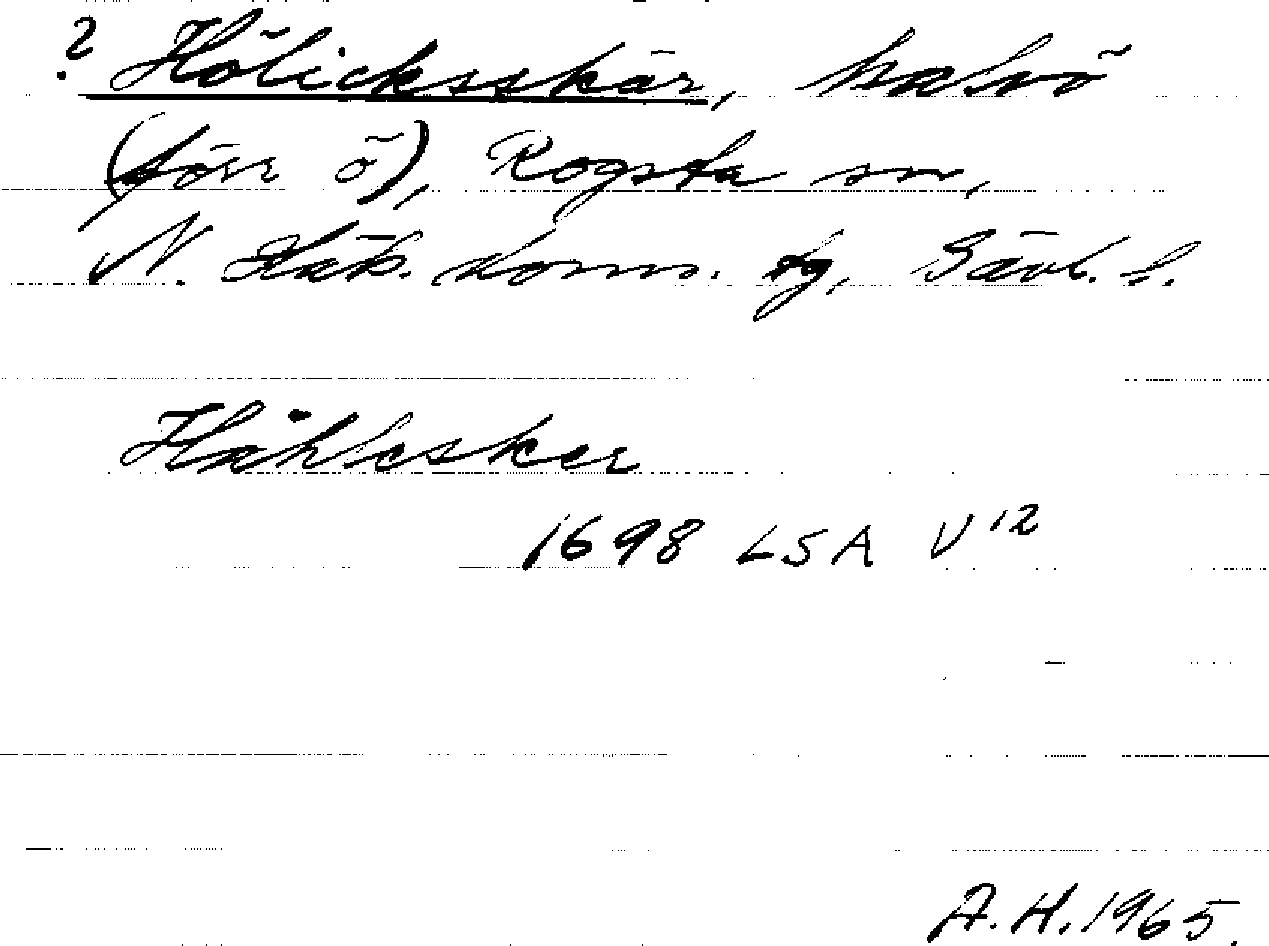 ? Hölicksskär, halvö
(förr ö), Rogsta sn,
N. Häls. doms. tg, Gävl. l.
Håhlesker
1698 LSA V 12
A.H. 1965.